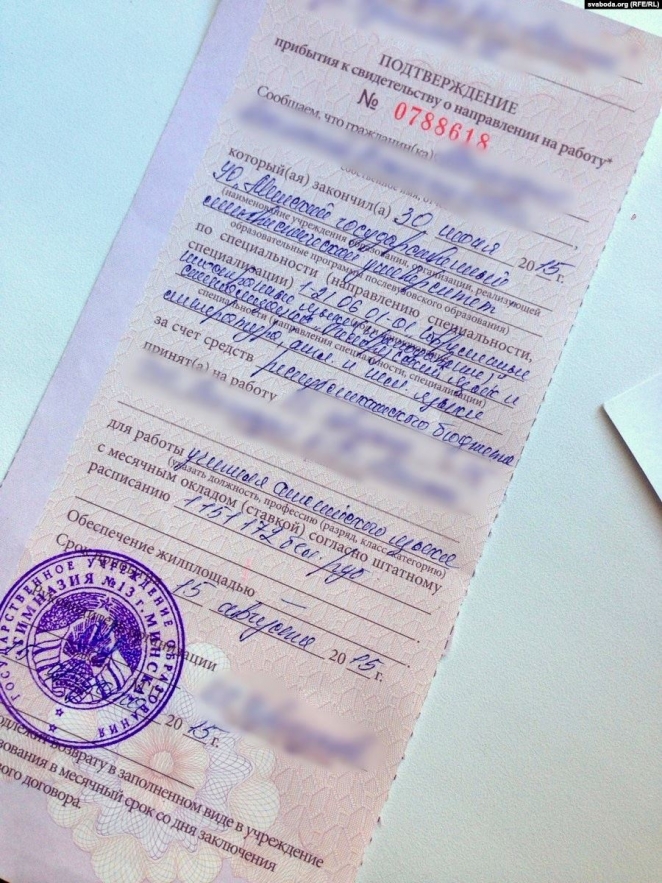 svaboda.org (RFE/RL)
ПОДТВЕРЖДЕНИЕ
прибытия к свидетельству о направлении на работу*
№ 0788618
Сообщаем, что гражданин(ка)
который(ая) закончил(а) 30 июня 2015 г.
УО "Минский государственный
(наименование учреждения образования, организации, реализующей
лингвистический университет
образовательные программы послевузовского образования)
по специальности (направлению специальности,
специализации) 1-21 06 01-01 Современные
иностранные языки (преподавание)
специальности (направления специальности, специализации)
литература, англ. и нем. языки
за счет средств республиканского бюджета
принят(а) на работу
для работы учителя английского языка
(указать должность, профессию (разряд, класс, категорию)
с месячным окладом (ставкой) согласно штатному
расписанию 1151172 бел. руб
Обеспечение жилплощадью —
Срок
15 августа 2015 г.
ГОСУДАРСТВЕННОЕ УЧРЕЖДЕНИЕ ОБРАЗОВАНИЯ
ГИМНАЗИЯ №13 г. МИНСКА
2015 г.
возврату в заполненном виде в учреждение
в месячный срок со дня заключения
договора.